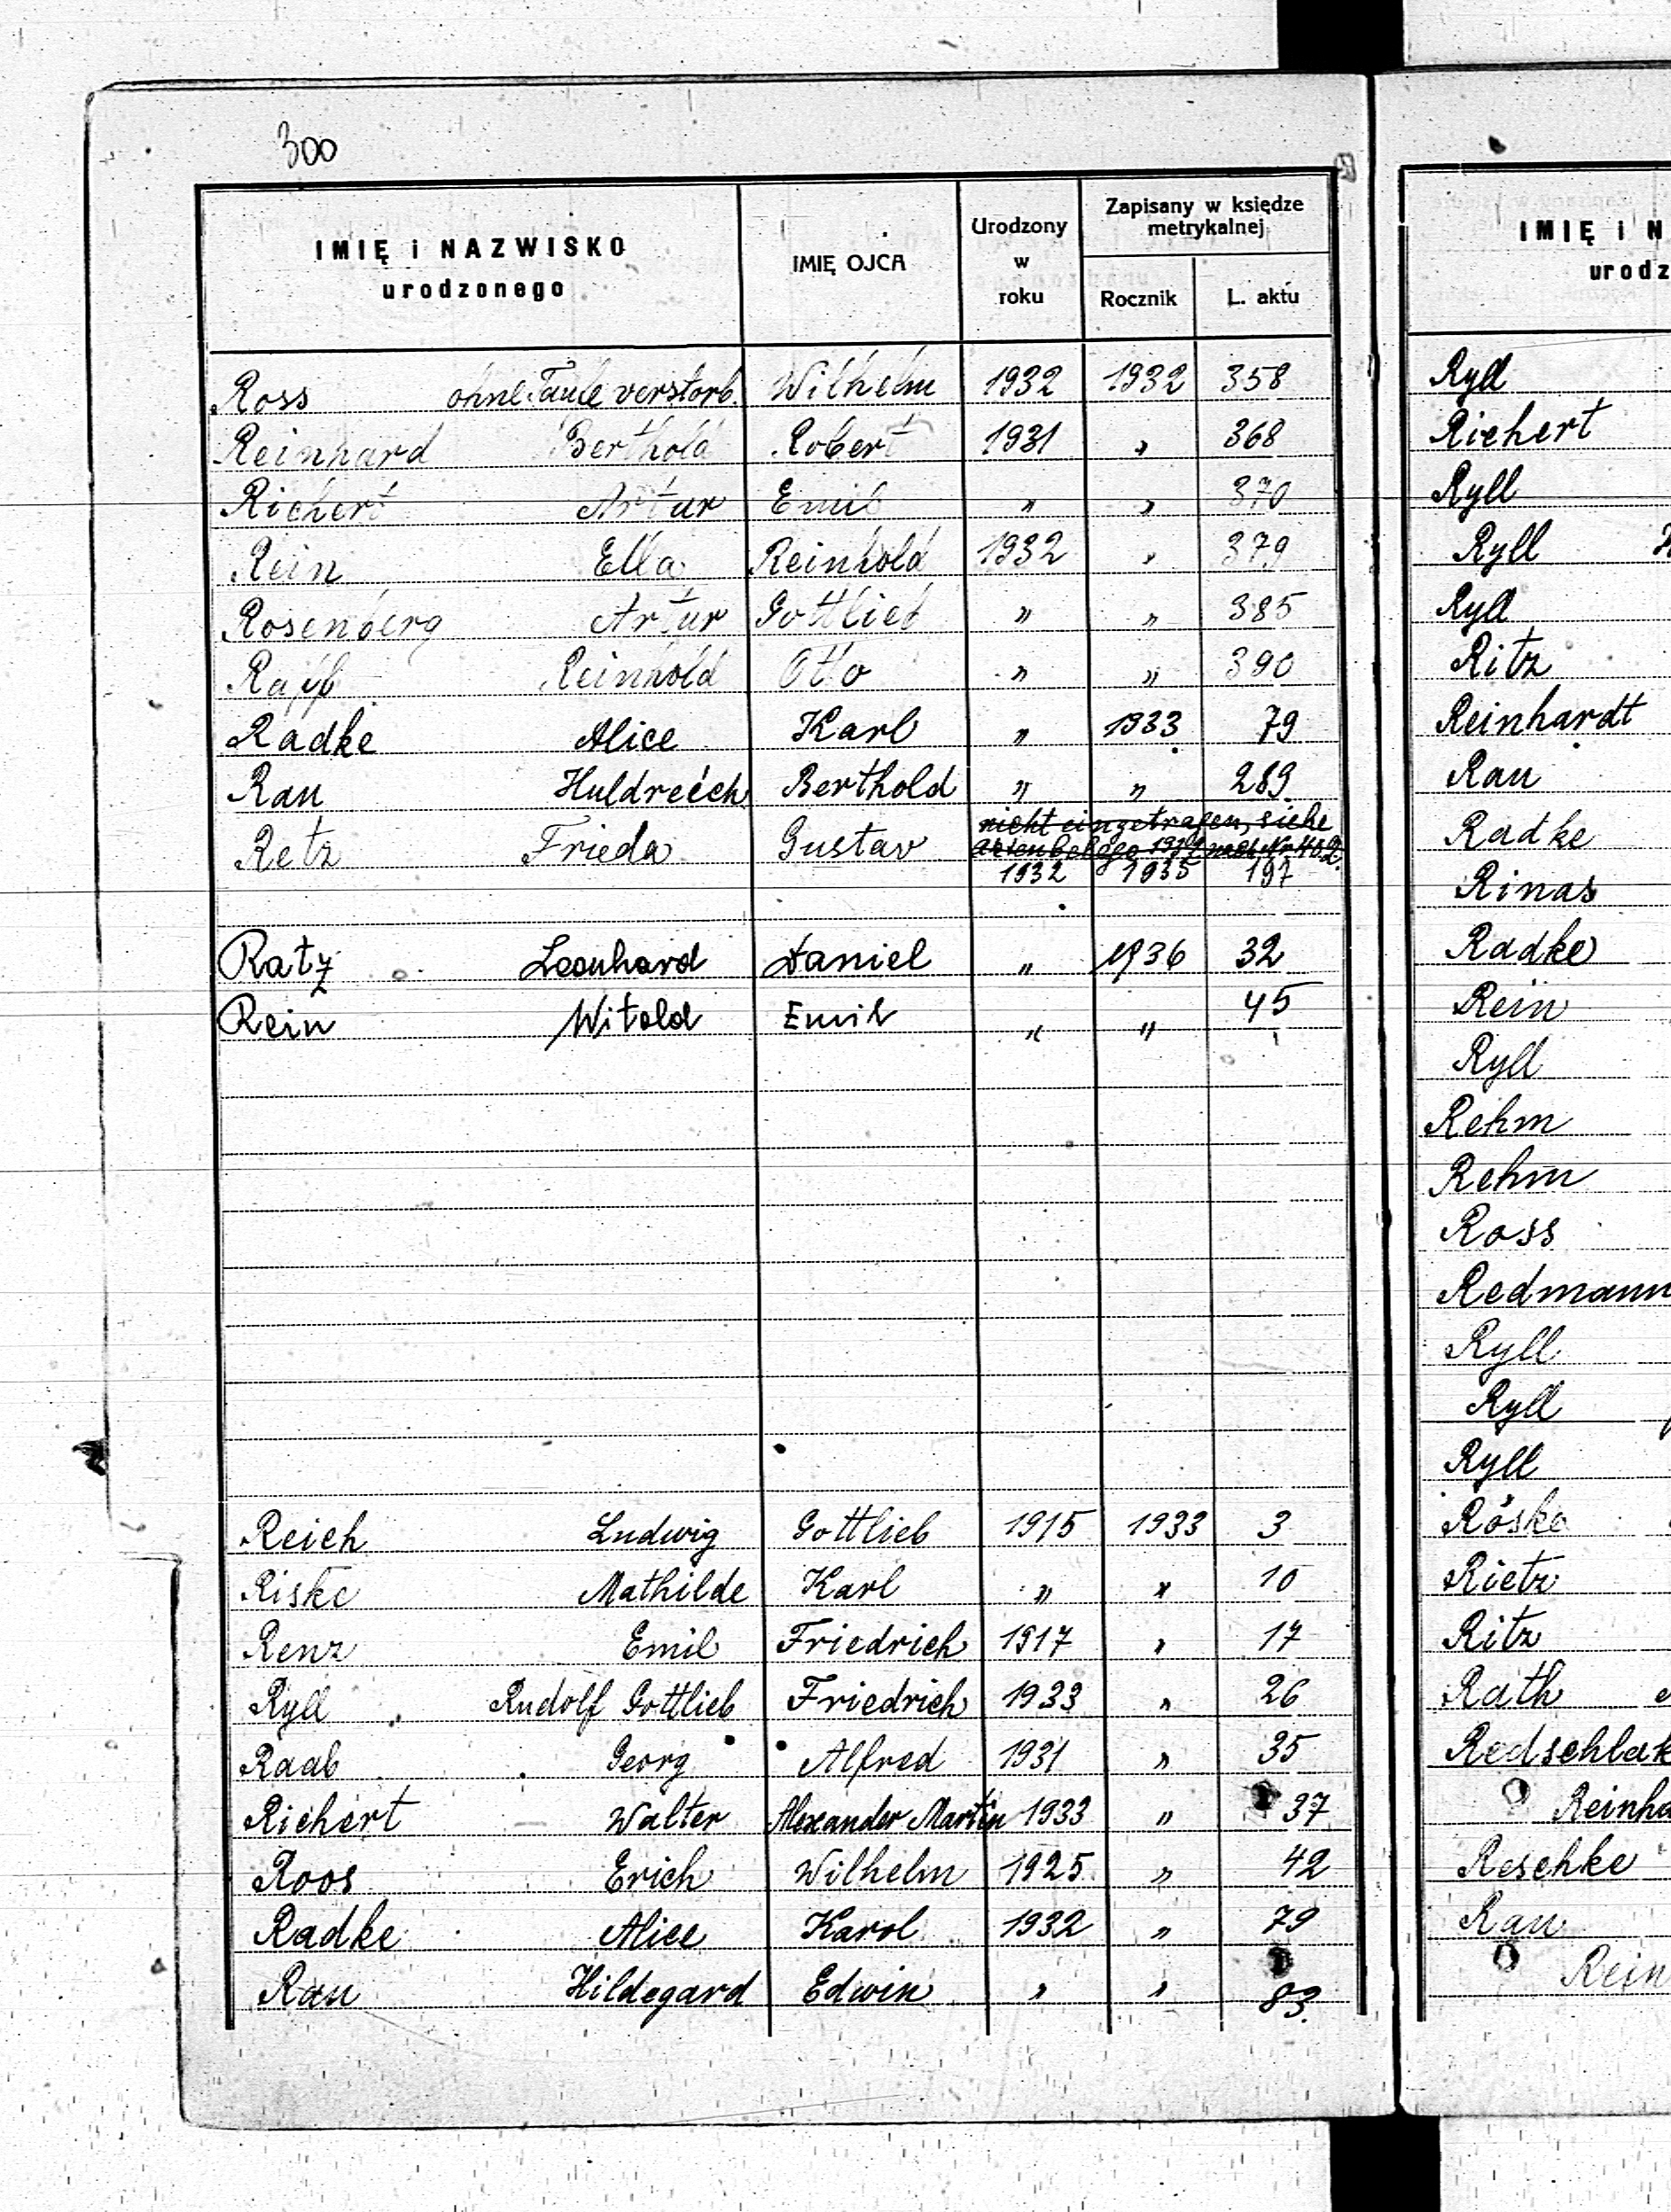 300
IMIĘ i NAZWISKO urodzonego IMIĘ OJCA Urodzony w roku Zapisany w księdze metrykalnej Rocznik L. aktu
Ross ohne Taufe verstorb. Wilhelm 1932 1932 358
Reinhard Berthold Robert 1931 " 368
Richert Artur Emil " " 370
Rein Ella Reinhold 1932 " 379
Rosenberg Artur Gottlieb " " 385
Reinhold Otto " " 390
Radke Alice Karl " 1933 79
Rau Huldreich Berthold " " 289
nicht eingetragen, siehe
Retz Frieda Gustav
1932 1935 197
Ratz Leonhard Daniel " 1936 32
Rein Witold Emil " " 45
Reich Ludwig Gottlieb 1915 1933 3
Riske Mathilde Karl " " 10
Renz Emil Friedrich 1917 " 17
Ryll Rudolf Gottlieb Friedrich 1933 " 26
Raab Georg Alfred 1931 " 35
Richert Walter Alexander Martin 1933 " 37
Roos Erich Wilhelm 1925 " 42
Radke Alice Karol 1932 " 79
Rau Hildegard Edwin " " 83.
IMIĘ i N
urodz
Ryll
Richert
Ryll
Ryll
Ryll
Ritz
Reinhardt
Rau
Radke
Rinas
Radke
Rein
Ryll
Rehm
Rehm
Ross
Redmann
Ryll
Ryll
Ryll
Röske
Rietz
Ritz
Rath
Redschlak
Reinha
Reschke
Rau
Rein